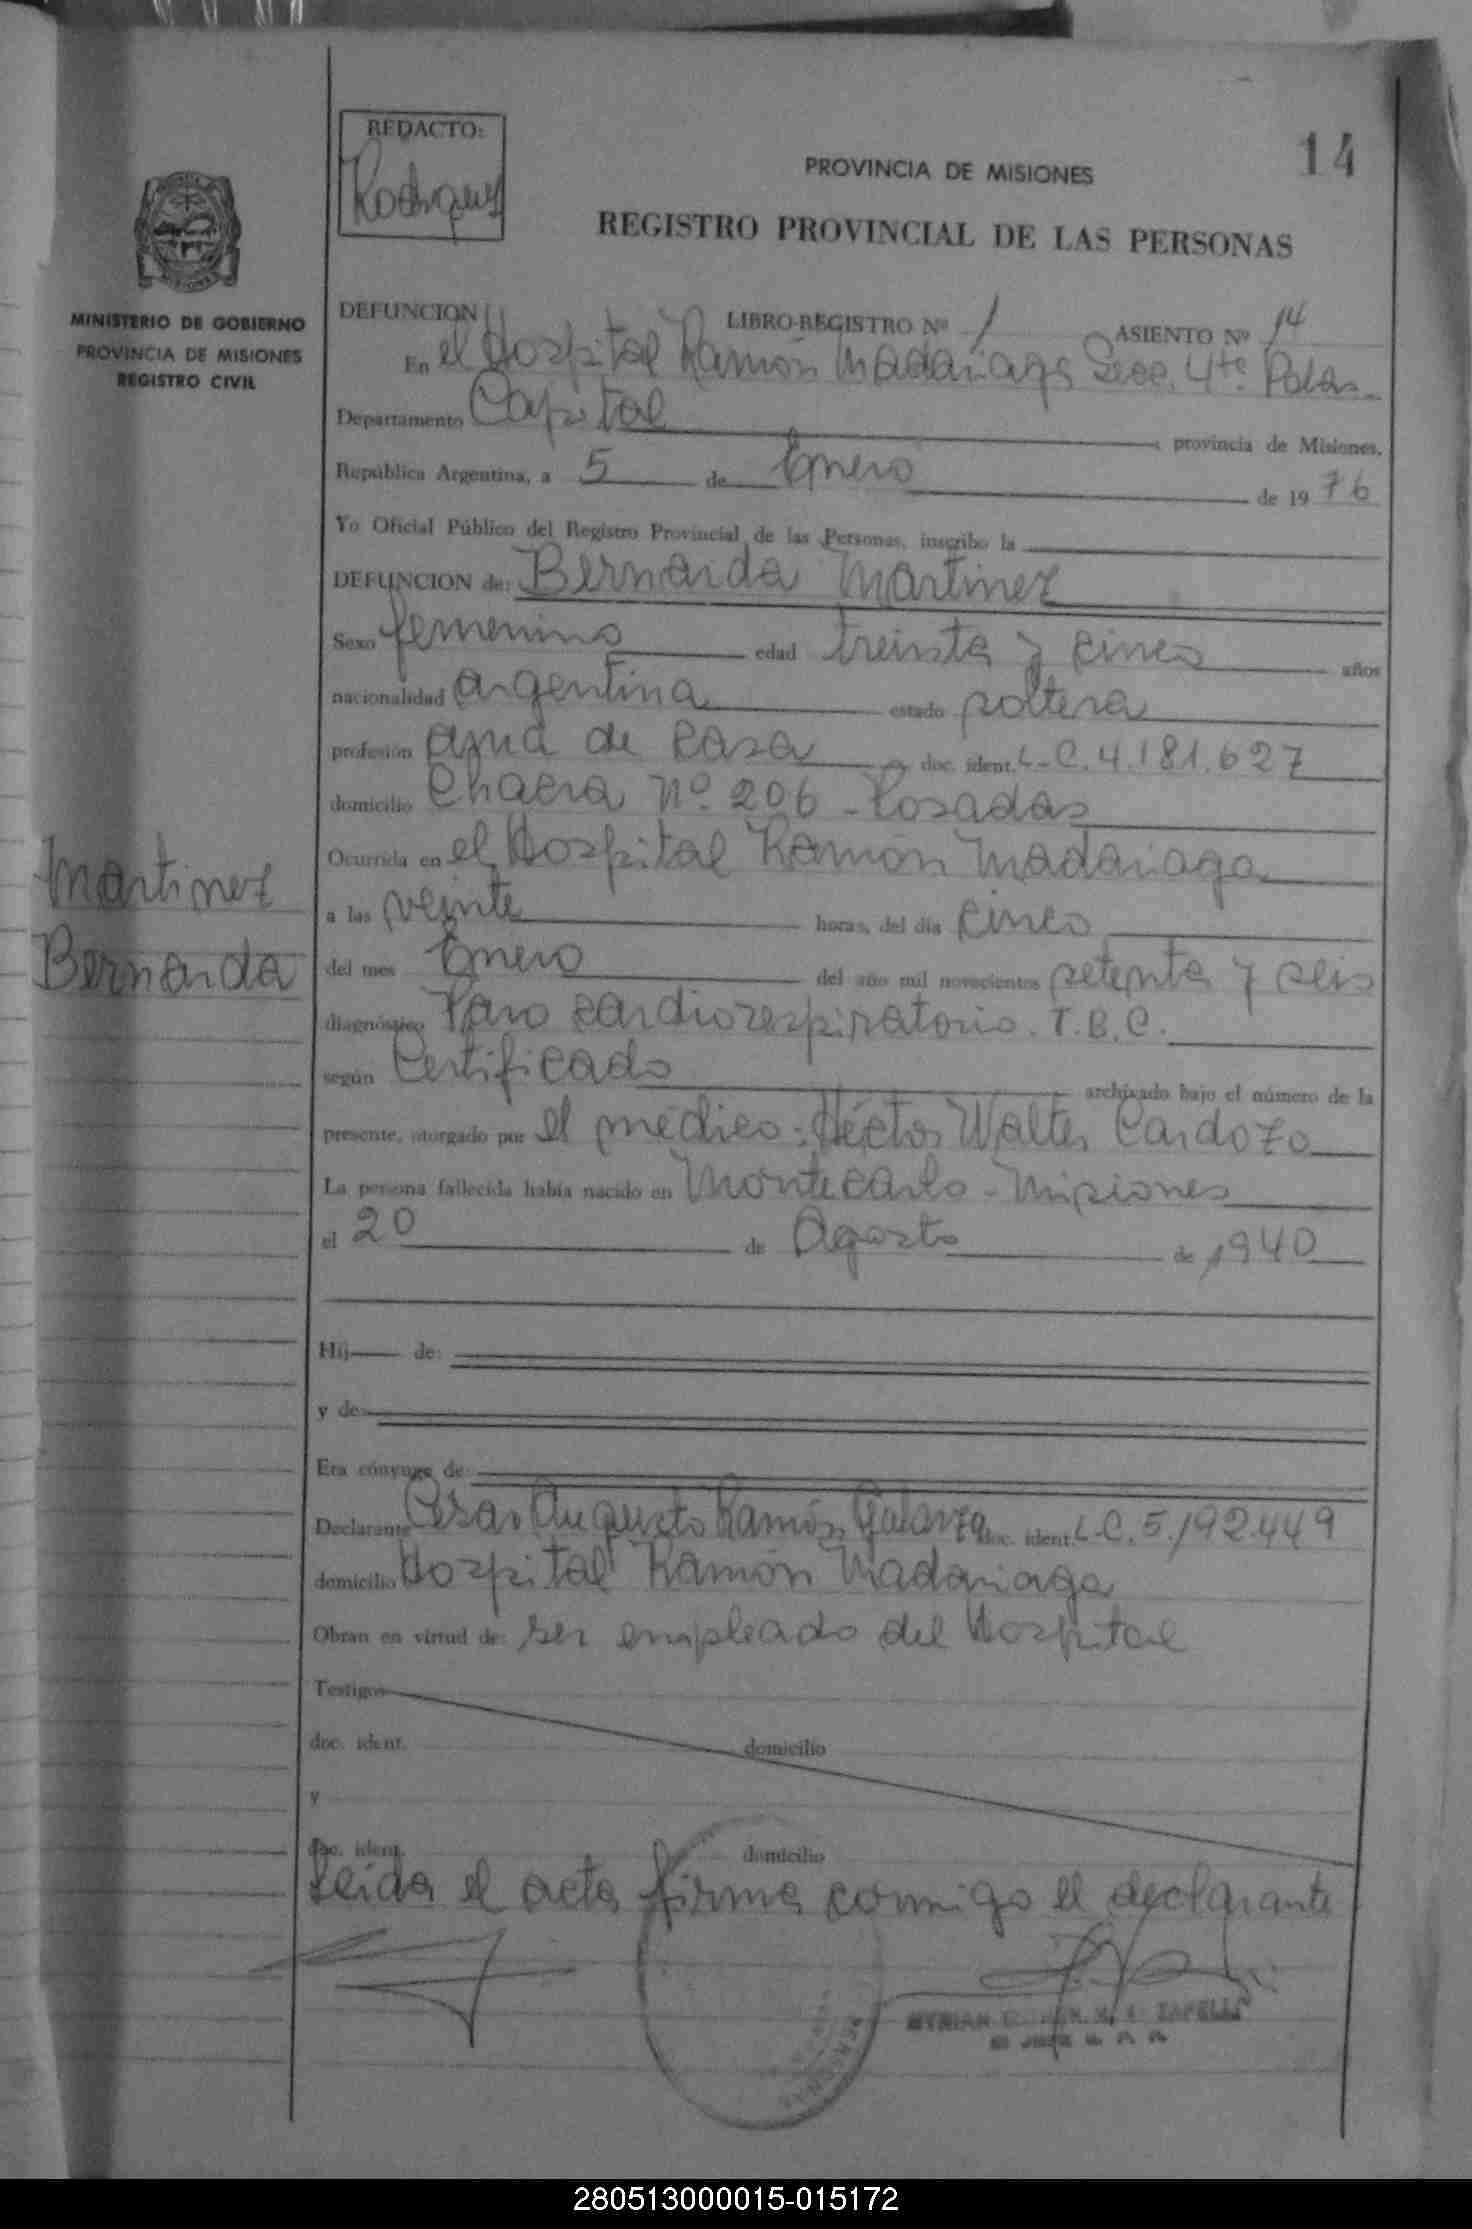 14
REDACTO:
Rodriguez
PROVINCIA DE MISIONES
REGISTRO PROVINCIAL DE LAS PERSONAS
MINISTERIO DE GOBIERNO
PROVINCIA DE MISIONES
REGISTRO CIVIL
DEFUNCION LIBRO-REGISTRO Nº 1 ASIENTO Nº 14
En el Hospital Ramón Madariaga Secc. 4ta. Pdas.
Departamento Capital provincia de Misiones.
República Argentina, a 5 de Enero de 1976
Yo Oficial Público del Registro Provincial de las Personas, inscribo la
DEFUNCION de: Bernarda Martinez
Sexo femenino edad treinta y cinco años
nacionalidad argentina estado soltera
profesión ama de casa doc. ident. L-C. 4.181.627
domicilio Chacra Nº 206 - Posadas
Ocurrida en el Hospital Ramón Madariaga
a las veinte horas, del día cinco
del mes Enero del año mil novecientos setenta y seis
diagnóstico Paro cardiorespiratorio. T.B.C.
según Certificado archivado bajo el número de la
presente, otorgado por el médico: Héctor Walter Cardozo
La persona fallecida había nacido en Montecarlo - Misiones
el 20 de Agosto de 1940
Hij de:
y de
Era cónyuge de:
Declarante Cesar Augusto Ramón Galarza doc. ident. L-C. 5.192.449
domicilio Hospital Ramón Madariaga
Obran en virtud de: ser empleado del Hospital
Testigos
doc. ident. domicilio
y
doc. ident. domicilio
Leida el acta firma conmigo el declarante
Martinez
Bernarda
PERSONAS
280513000015-015172